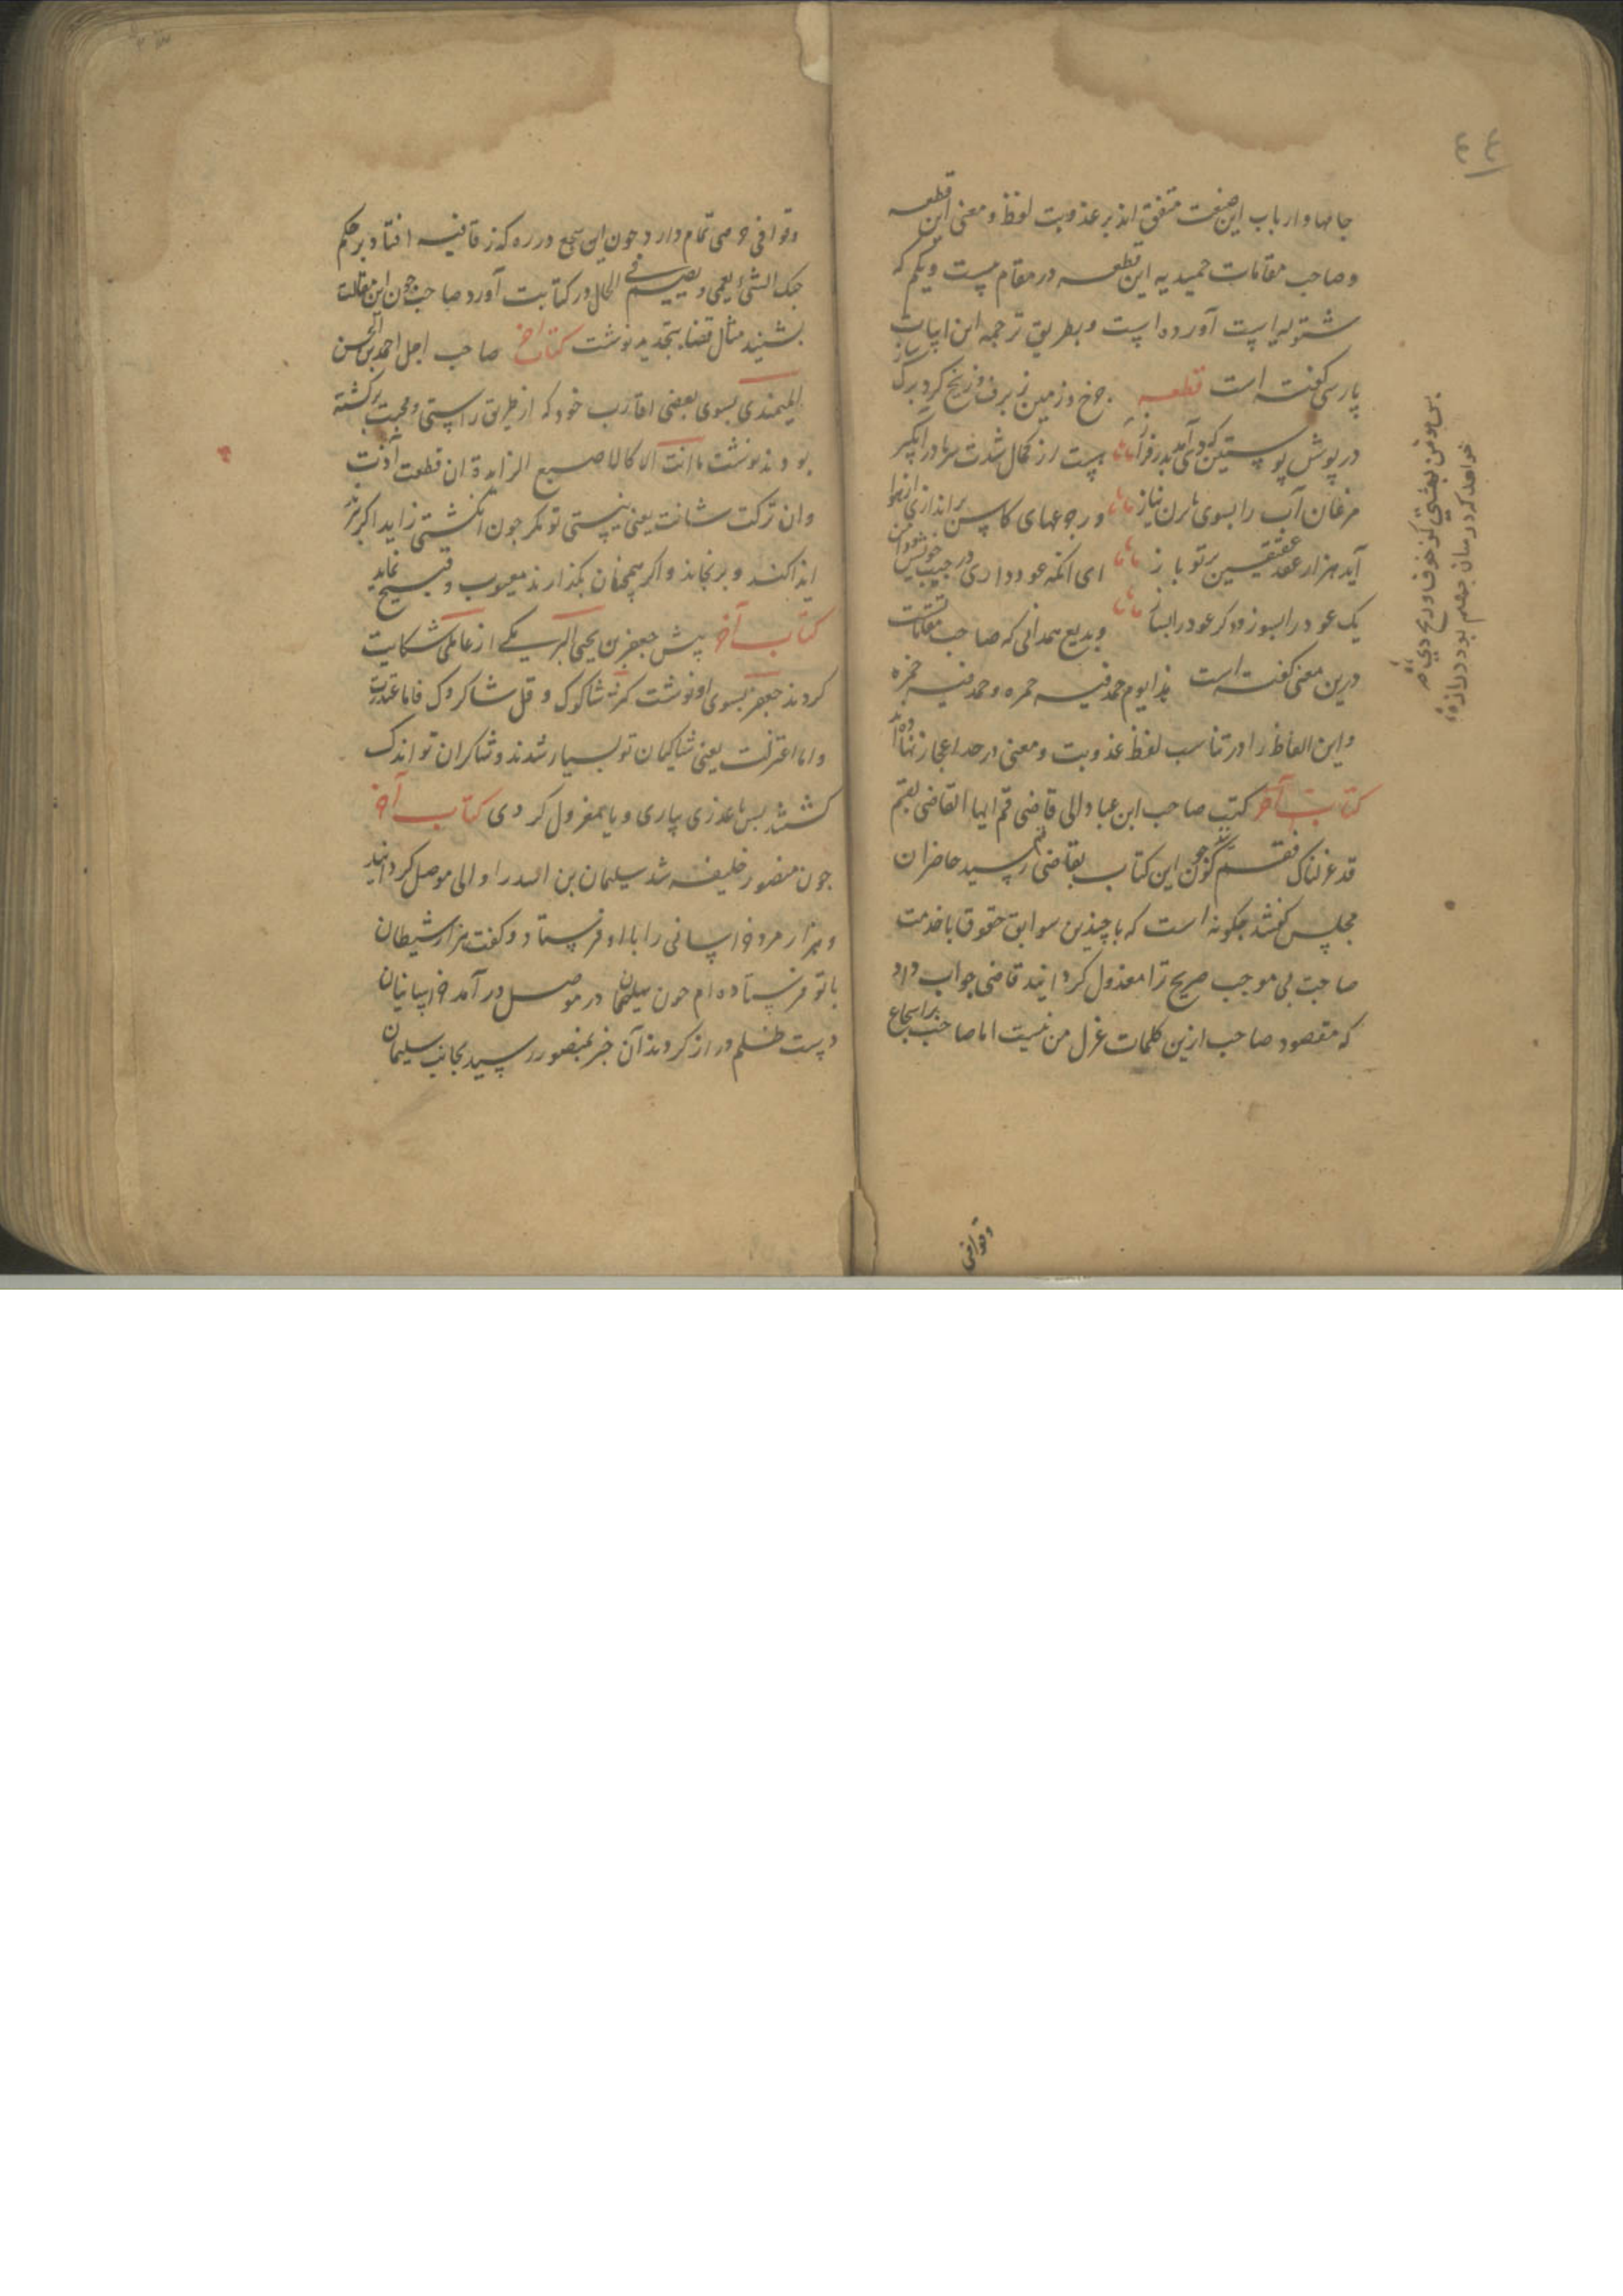 ٤٤
جانها و ارباب این صنعت متفق اند بر عذوبت لفظ و معنی این قطعه
و صاحب مقامات حمیدیه این قطعه در مقام بیست و یکم که
شتویه است آورده است و بطریق ترجمه این ابیات
پارسی گفته است قطعه چرخ و زمین ز برف و ز یخ کرد برک ساز
در پوش پوستین که دی آمد ز در فراز بیست از کمال شدت سرما در آبگیر
مرغان آب را بسوی نیاز ور جرعهای کاس بر اندازی از هوا
آید هزار عقد عقیقین بر تو باز ای آنکه عود داری در جیب و
یک عود را بسوز و دکر عود را بساز و بدیع همدانی که صاحب مقامات
درین معنی گفته است هذا یوم جمد فیه خمره و خمد فیه جمره
و این الفاظ را در تناسب لفظ عذوبت و معنی در حد اعجاز نهاده
کتاب آخر کتب صاحب ابن عباد الی قاضی قم ایها القاضی بقم
قد عزلناک فقم چون این کتاب بقاضی قم رسید حاضران
مجلس گفتند چکونه است که با چندین سوابق حقوق با خدمت
صاحب بی موجب صریح ترا معذول کردانید قاضی جواب داد
که مقصود صاحب ازین کلمات عزل من نیست اما صاحب بر اسجاع
وقوافی
خواهد کرد میان جهنم بود دراز
وقوافی حرصی تمام دارد چون این سجع در ره که ز قافیه افتاد بر حکم
حبک الشیء یعمی و یصم فی الحال در کتابت آورد صاحب چون این مقالت
بشنید مثال قضا بتجدید نوشت کتاب آخر صاحب اجل احمد بن الحسن
المیمندی بسوی بعضی اقارب خود که از طریق راستی و محبت برگشته
بودند نوشت ما انت الا کالاصبع الزایدة ان قطعت آذت
وان ترکت شانت یعنی نیستی تو مکر چون انکشتی زاید اکر برند
ایذا کند و برنجاند و اکر همچنان بگذارند معیوب و قبیح نماید
کتاب آخر پیش جعفر بن یحیی البرمکی از عاملی شکایت
کردند جعفر بسوی او نوشت کثر شاکوک و قل شاکروک فاما عدلت
و اما اعتزلت یعنی شاکیان تو بسیار شدند و شاکران تو اندک
گشتند پس یا عذری بیاری و یا معزول کردی کتاب آخر
چون منصور خلیفه شد سلیمان بن را والی موصل کردانید
و هزار مرد خراسانی را با او فرستاد و کفت هزار شیطان
با تو فرستاده ام چون سلیمان در موصل در آمد خراسانیان
دست ظلم دراز کردند آن خبر بمنصور رسید بجانب سلیمان